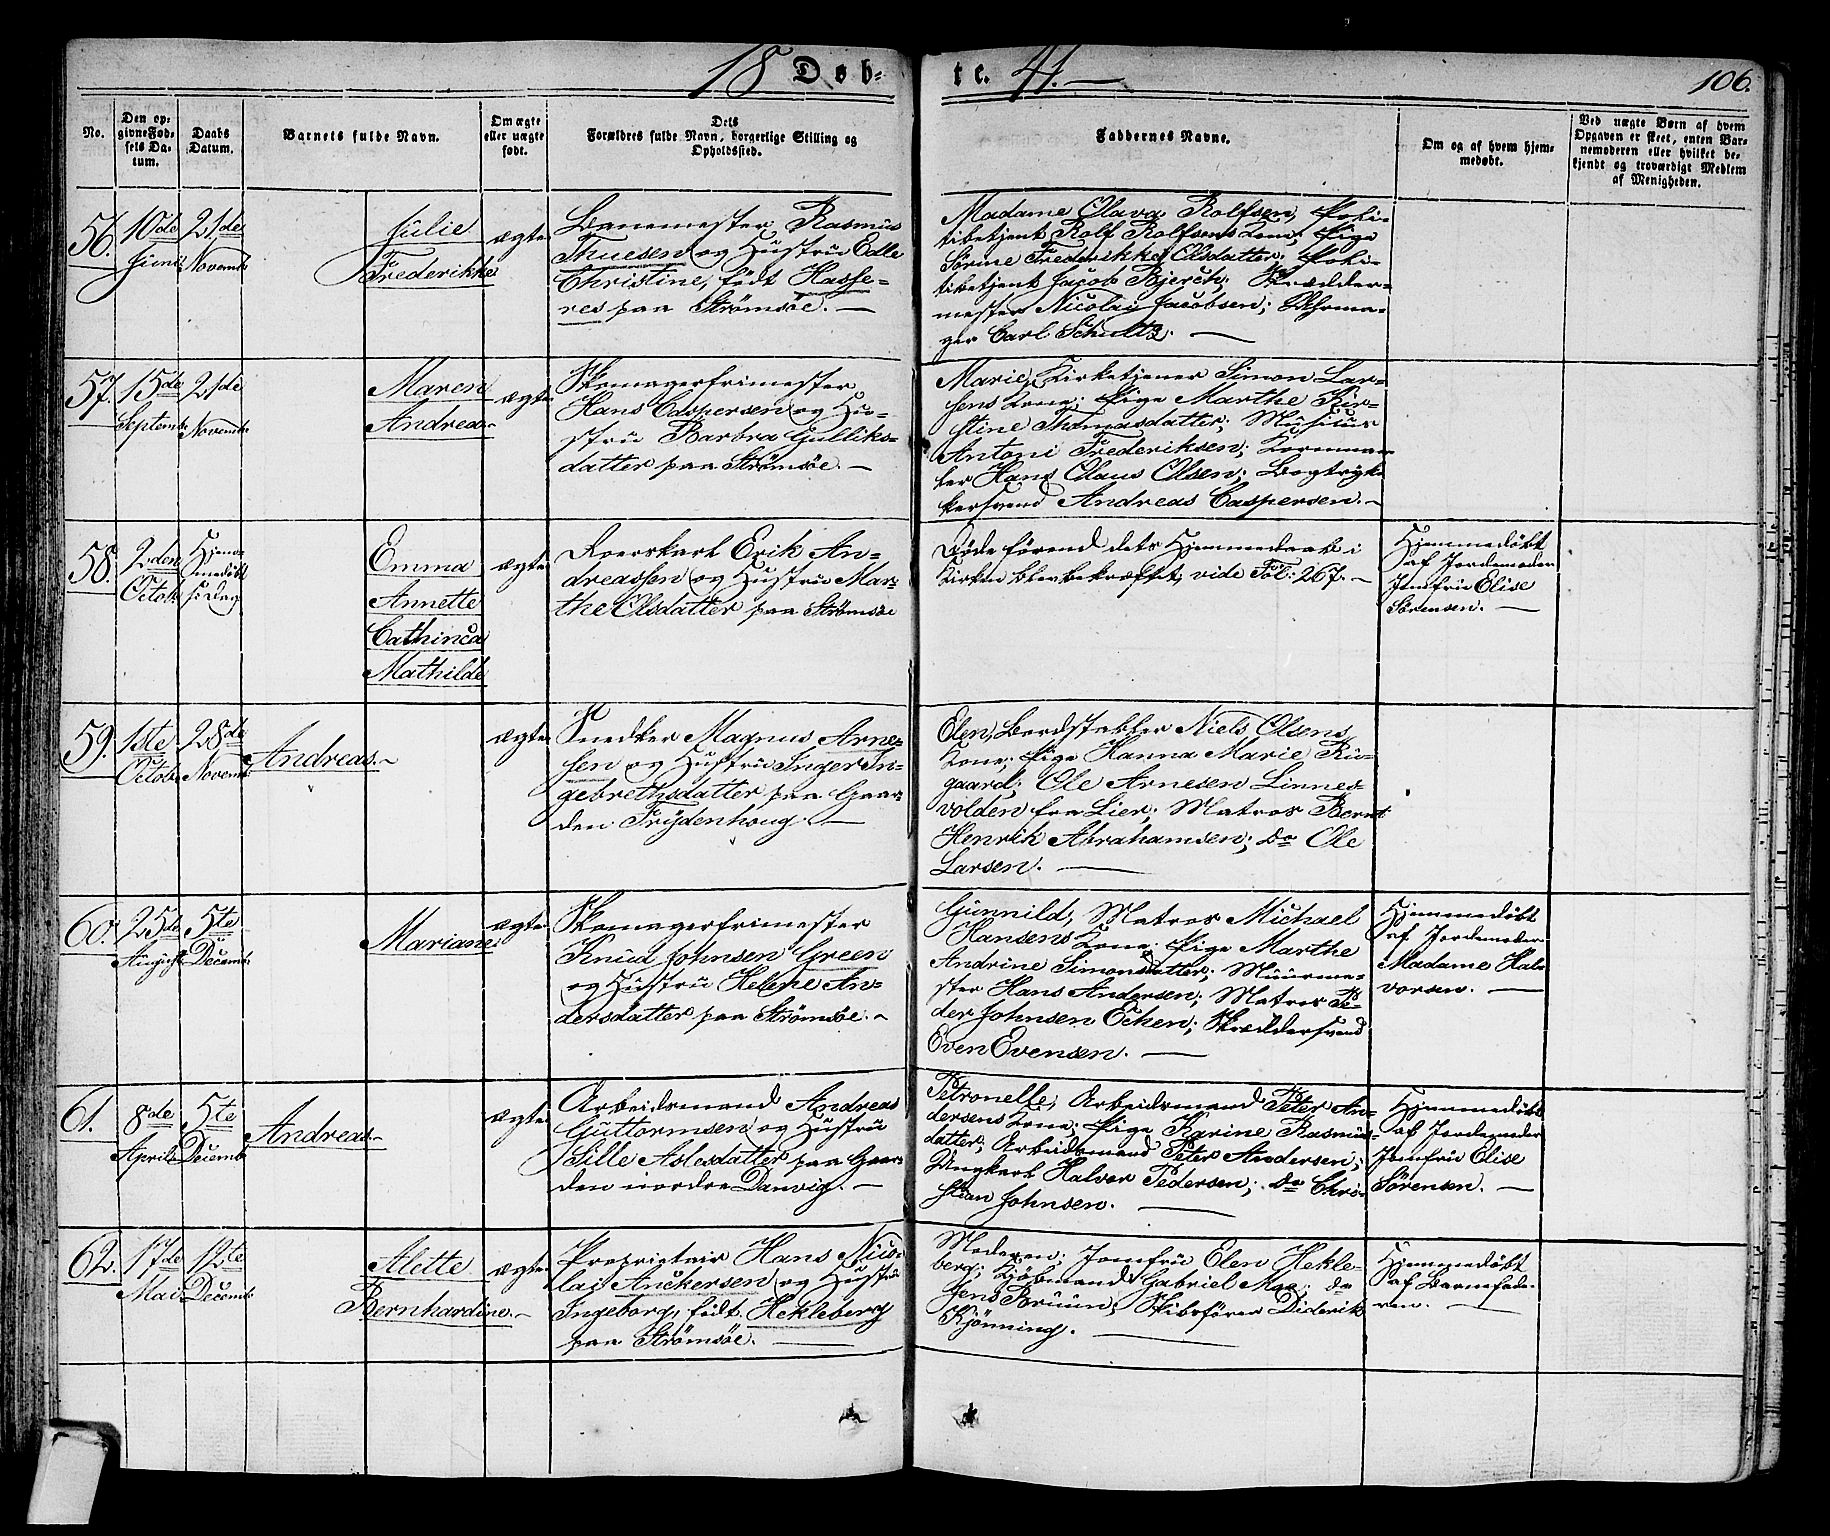 18 Døb-
te. 41. —
106.
No.
Den op-
givne Fød-
sels Da-
tum.
Daabs
Datum.
Barnets fulde Navn.
Om ægte
eller uægte
født.
Dets
Forældres fulde Navn, borgerlige Stilling og
Opholdssted.
Faddernes Navne.
Om og af hvem hjem-
medøbt.
Ved uægte Børn af hvem
Opgaven er skeet, enten Bar-
nemoderen eller hvilket be-
kjendt og troværdigt Medlem
af Menigheden.
56.
10de
Juni
21de
Novemb.
Julie
Frederikke
ægte
Banemester Rasmus
Thuesen og Hustru Edle
Christine, født Hasse-
res paa Strømsøe. —
Madame Olava Rolfsen, Poli-
tibetjent Rolf Rolfsens Kone; Pige
Sørine Frederikke Olsdatter; Poli-
tibetjent Jacob Bjerch; Skrædder-
mester Nicolay Jacobsen; Uhrma-
ger Carl Schultz. —
57.
15de
Septemb.
21de
Novemb.
Maren
Andrea. -
ægte
Skomagerfrimester
Hans Caspersen og Hu-
stru Barbra Gulliks-
datter paa Strømsøe. —
Marie, Kirketjener Simon Lar-
sens Kone; Pige Marthe Kir-
stine Thomasdatter; Musicus
Antoni Frederiksen; Kornmaa-
ler Hans Claus Olsen; Bogtryk-
kersvend Andreas Caspersen. -
58.
2den
Octob.
Hjem-
medøbt
s. Dag
Emma
Annette
Cathinca
Mathilde
ægte
Roerskarl Erik An-
dreassen og Hustru Mar-
the Olsdatter paa Strømsøe
Døde førend dets Hjemmedaab i
Kirken blev bekræftet, vide Fol: 267. -
Hjemmedøbt
af Jordemoder
Jomfru Elise
Sørensen. —
59.
1ste
Octob.
28de
Novemb.
Andreas. -
ægte
Snedker Magnus Arne-
sen og Hustru Inger In-
gebrethsdatter paa Gaar-
den Frydenhoug. —
Elen, Bordstabler Niels Olsens
Kone; Pige Hanna Marie Ru-
gaard; Ole Arnesen Linnes-
volden fra Lier; Matros Bernt
Henrik Abrahamsen; do Ole
Larsen. —
60.
25de
August
5te
Decemb.
Mariane.
ægte
Skomagerfrimester
Knud Johnsen Green
og Hustru Helene An-
dersdatter paa Strømsøe. -
Gunnild, Matros Michael
Hansens Kone; Pige Marthe
Andrine Simonsdatter; Muurme-
ster Hans Andersen; Matros Pe-
der Johnsen Echen; Skræddersvend
Even Evensen. —
Hjemmedøbt
af Jordemoder
Madame Hal-
vorsen. —
61.
8de
April
5te
Decemb.
Andreas. -
ægte
Arbeidsmand Andreas
Guttormsen og Hustru
Sille Aslesdatter paa Gaar-
den nordre Danvig. —
Petronelle, Arbeidsmand Peter An-
dersens Kone; Pige Karine Rasmus-
datter; Arbeidsmand Peter Andersen;
Ungkarl Halvor Pedersen; do Chri-
stian Johnsen. —
Hjemmedøbt
af Jordemoder
Jomfru Elise
Sørensen. —
62.
17de
Mai
12te
Decemb.
Alette
Bernhardine. -
ægte
Proprietair Hans Nico-
lai Anckersen og Hustru
Ingeborg, født Hekleberg
paa Strømsøe. —
Moderen; Jomfru Elen Hekle-
berg; Kjøbmand Gabriel Moe; do
Jens Bruun; Skibsfører Diderik
Kjønning. —
Hjemmedøbt
af Barnefade-
ren. —